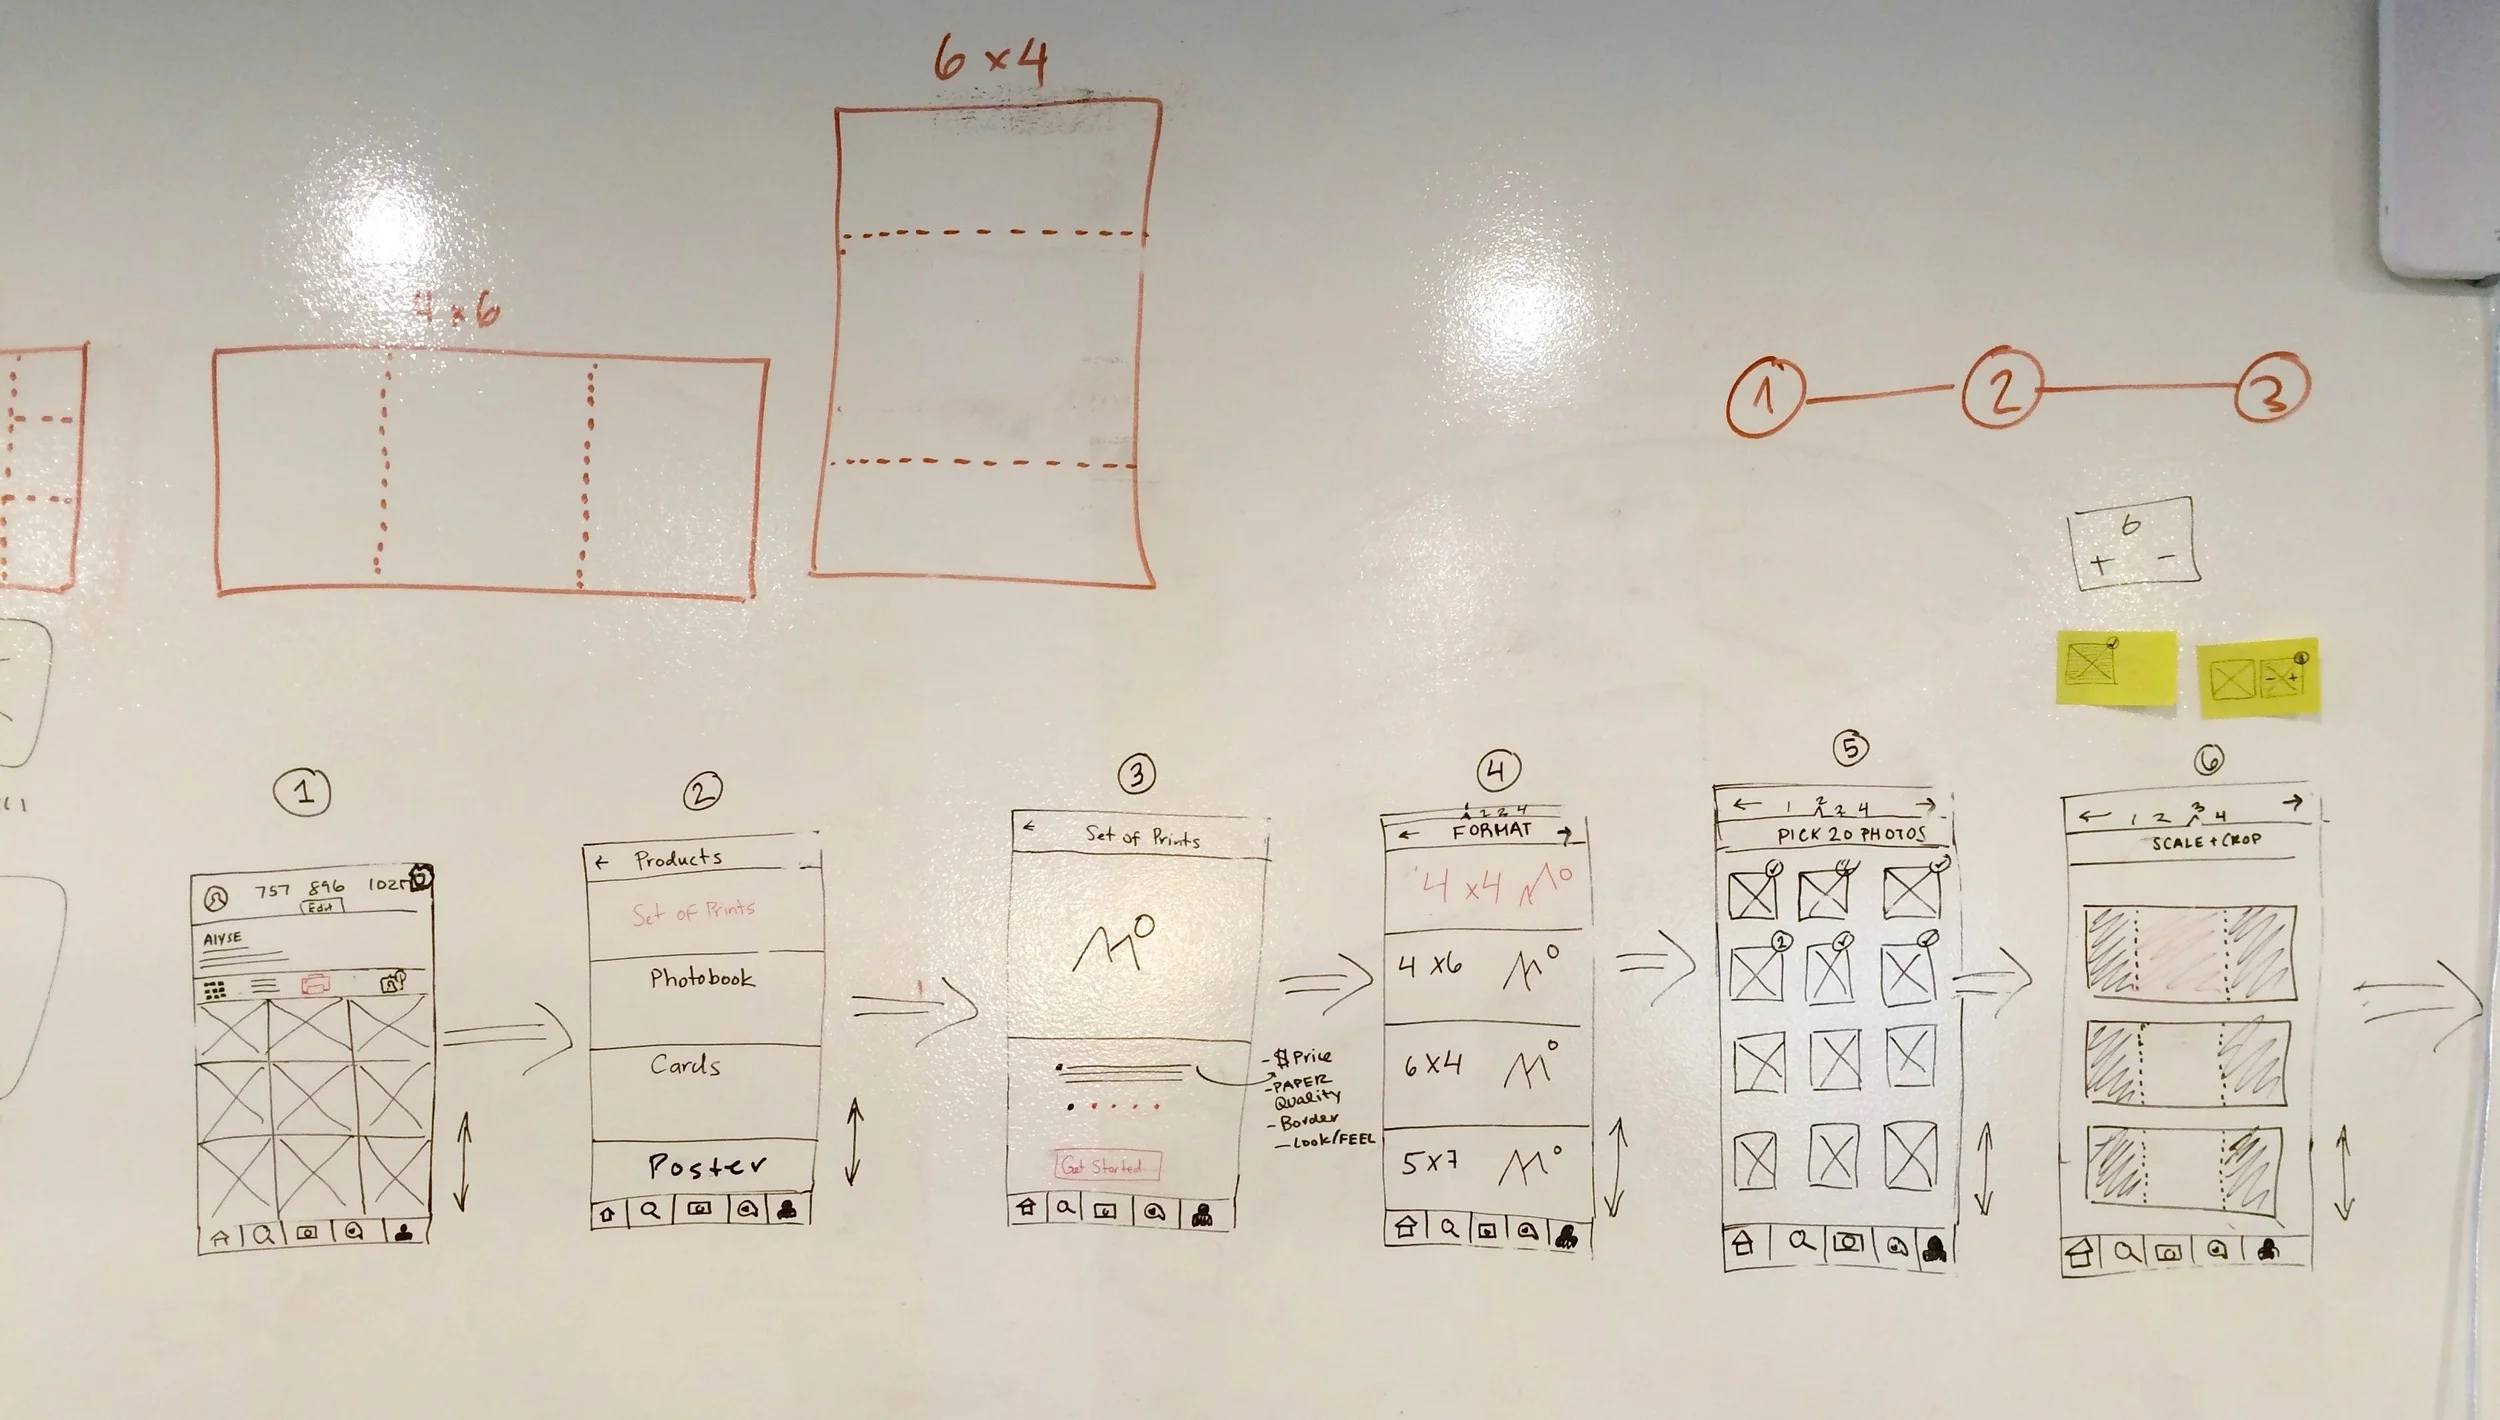 6 x 4
4 x 6
1
2
3
6
+ -
- +
1
757 896
Edit
Alyse
2
← Products
Set of Prints
Photobook
Cards
Poster
3
← Set of Prints
- $ Price
- PAPER
Quality
- Border
- Look/FEEL
Get Started
4
← FORMAT →
4 x4
4 x6
6 x4
5x7
5
← 1 2 2 4 →
PICK 20 PHOTOS
2
6
← 1 2 3 4 →
SCALE + CROP